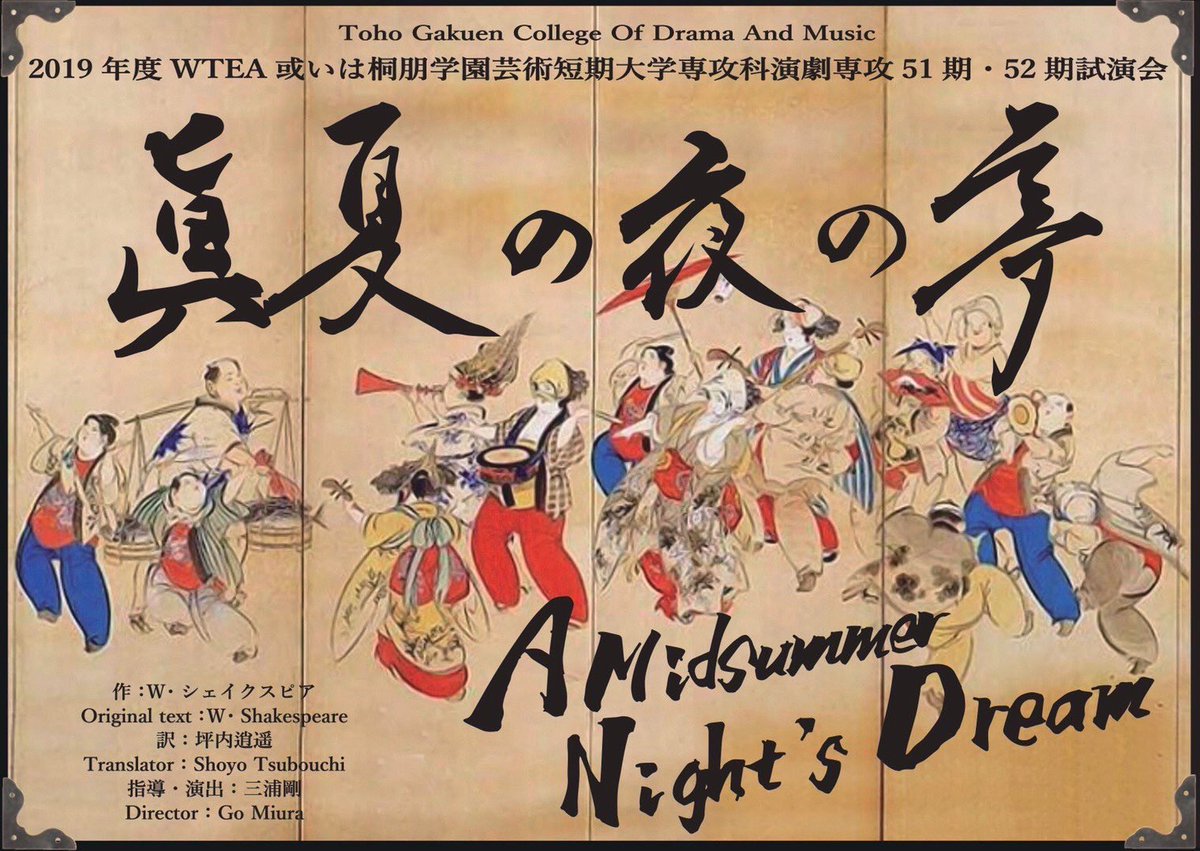 Toho Gakuen College Of Drama And Music
2019年度 WTEA 或いは桐朋学園芸術短期大学専攻科演劇専攻51期・52期試演会
眞夏の夜の夢
A Midsummer
Night's Dream
作：W・シェイクスピア
Original text：W・Shakespeare
訳：坪内逍遥
Translator：Shoyo Tsubouchi
指導・演出：三浦剛
Director：Go Miura